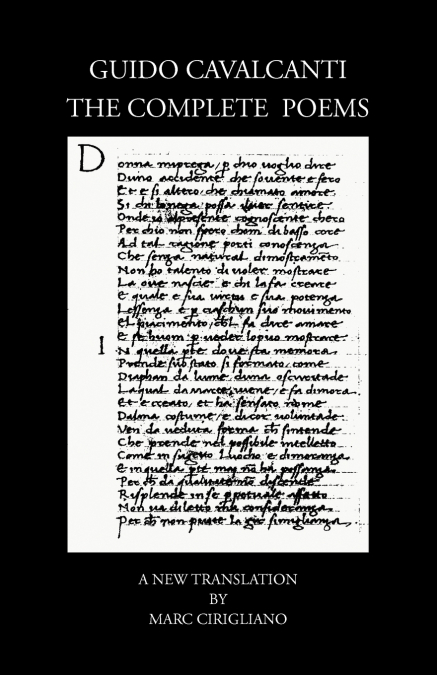 GUIDO CAVALCANTI
THE COMPLETE POEMS
Donna miprega, p chio uoglio dire
Duno accidente che souente e fero
Et e si altero, che chiamato amore
Si chi lonega possa sentire
alpresente cognoscente chero
Per chio non spero chom di basso core
Ad tal ragione porti conoscenza
Che senza natural dimostramento
Non ho talento di uoler mostrare
La oue nascie e chi lo fa creare
E quale e sua uirtu e sua potenza
Lessenza e p ciaschun suo mouimento
El piacimento, chel fa dire amare
E se huom p ueder lopuo mostrare
IN quella pte doue sta memora
Prende sub stato si formato, come
Diaphan da lume duna oscuritade
Laqual da marte uene, e fa dimora
Et e creato, et ha sensato nome
Dalma costume, e di cor uoluntade
Ven da ueduta forma ch sintende
Che prende nel possibile intelletto
Come in sugetto luocho e dimoranza
E in quella pte mai no ha possanza
Per ch da qualitate descende
Risplende in se
Non ua diletto ma consideranza
Per ch non puote la gir simiglianza
A NEW TRANSLATION
BY
MARC CIRIGLIANO